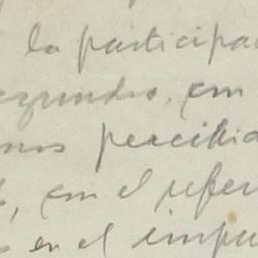 la participa
egundos, con
mos percibía
, con el refer
s en el impu